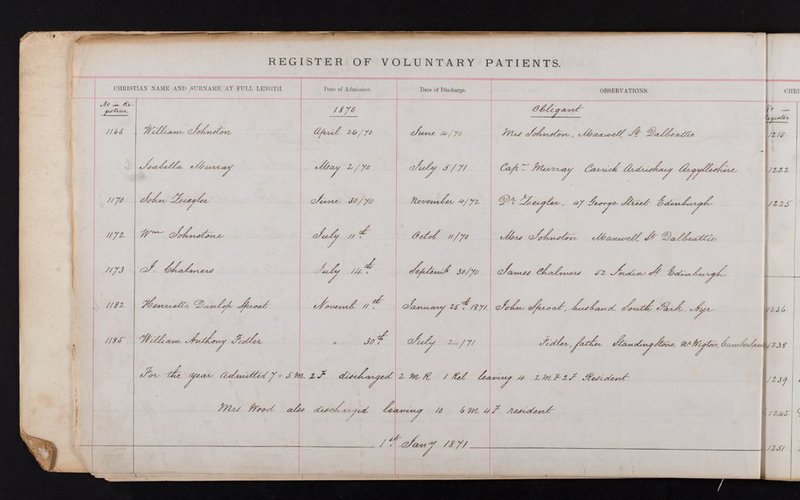 REGISTER OF VOLUNTARY PATIENTS.
CHRISTIAN NAME AND SURNAME AT FULL LENGTH. Date of Admission. Date of Discharge. OBSERVATIONS. CHRI
No in Register 1870 Obligant
1165 William Johnston April 26/70 June 14/70 Mrs Johnston, Maxwell St Dalbeattie 1215
Isabella Murray May 2/70 July 5/71 Capt Murray Carrick Ardrishaig Argylleshire 1222
1170 John Zeigler June 30/70 November 4/72 Dr Zeigler, 47 George Street Edinburgh 1225
1172 Wm Johnstone July 11th Octob 11/70 Mrs Johnston Maxwell St Dalbeattie
1173 J. Chalmers July 14th Septemb 30/70 James Chalmers 52 India St Edinburgh
1182 Henrietta Dunlop Sproat Novemb 11th January 25th 1871 John Sproat, husband South Park Ayr 1236
1185 William Anthony Fidler " 30th July /71 Fidler, father Standing Stone Nr Wigton, Cumberland 1238
For the year admitted 7 = 5 M. 2 F discharged 2 M R 1 Rel leaving 4 2 M & 2 F Resident 1239
Mrs Wood also discharged leaving 10 6 M 4 F resident 1245
1st Jany 1871 1251